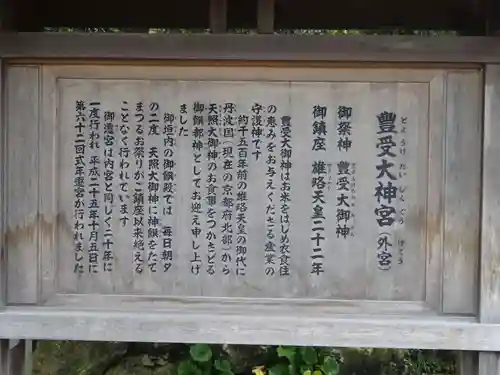 とようけだいじんぐう げくう
豐受大神宮（外宮）
御祭神 豐受大御神
御鎮座 雄略天皇二十二年
豐受大御神はお米をはじめ衣食住
の恵みをお与えくださる産業の
守護神です
約千五百年前の雄略天皇の御代に
丹波国（現在の京都府北部）から
天照大御神のお食事をつかさどる
御饌都神としてお迎え申し上げ
ました
御垣内の御饌殿では 毎日朝夕
の二度 天照大御神に神饌をたて
まつるお祭りがご鎮座以来絶える
ことなく行われています
御遷宮は内宮と同じく二十年に
一度行われ 平成二十五年十月五日に
第六十二回式年遷宮が行われました